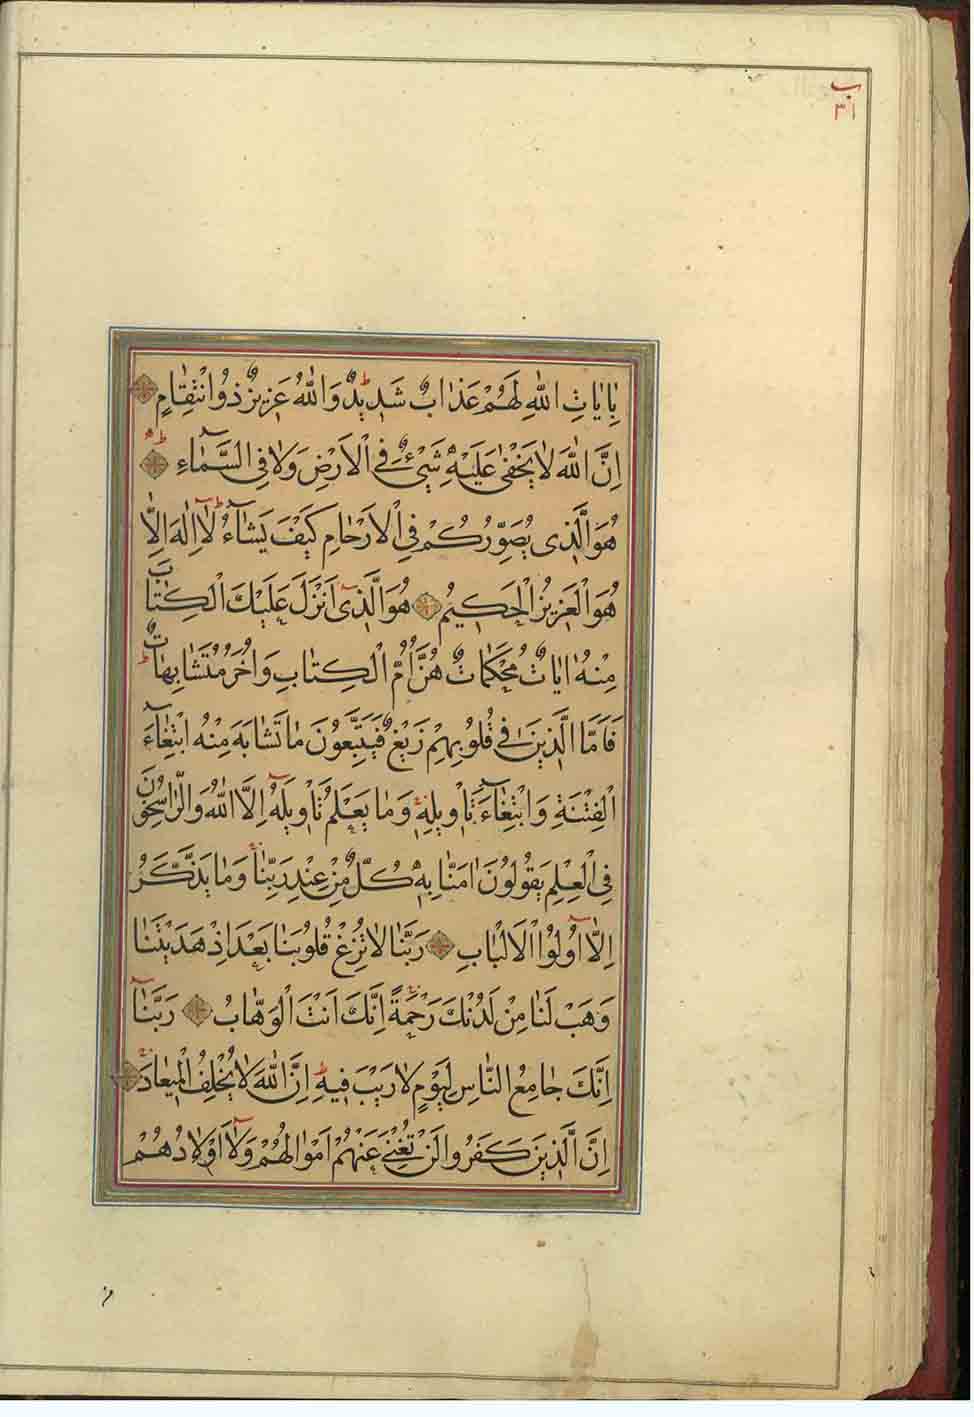 ب
٣١
بِاٰيَاتِ اللّٰهِ لَهُمْ عَذَابٌ شَدٖيدٌ وَاللّٰهُ عَزٖيزٌ ذُو انْتِقَامٍ
اِنَّ اللّٰهَ لَا يَخْفٰى عَلَيْهِ شَيْءٌ فِي الْاَرْضِ وَلَا فِي السَّمَٓاءِ
هُوَ الَّذٖى يُصَوِّرُكُمْ فِي الْاَرْحَامِ كَيْفَ يَشَٓاءُ لَٓا اِلٰهَ اِلَّا
هُوَ الْعَزٖيزُ الْحَكٖيمُ هُوَ الَّذٖٓى اَنْزَلَ عَلَيْكَ الْكِتَابَ
مِنْهُ اٰيَاتٌ مُحْكَمَاتٌ هُنَّ اُمُّ الْكِتَابِ وَاُخَرُ مُتَشَابِهَاتٌ
فَاَمَّا الَّذٖينَ فٖي قُلُوبِهِمْ زَيْغٌ فَيَتَّبِعُونَ مَا تَشَابَهَ مِنْهُ ابْتِغَٓاءَ
الْفِتْنَةِ وَابْتِغَٓاءَ تَاْوٖيلِهٖ وَمَا يَعْلَمُ تَاْوٖيلَهُٓ اِلَّا اللّٰهُ وَالرَّاسِخُونَ
فِي الْعِلْمِ يَقُولُونَ اٰمَنَّا بِهٖ كُلٌّ مِنْ عِنْدِ رَبِّنَا وَمَا يَذَّكَّرُ
اِلَّٓا اُولُوا الْاَلْبَابِ رَبَّنَا لَا تُزِغْ قُلُوبَنَا بَعْدَ اِذْ هَدَيْتَنَا
وَهَبْ لَنَا مِنْ لَدُنْكَ رَحْمَةً اِنَّكَ اَنْتَ الْوَهَّابُ رَبَّنَٓا
اِنَّكَ جَامِعُ النَّاسِ لِيَوْمٍ لَا رَيْبَ فٖيهِ اِنَّ اللّٰهَ لَا يُخْلِفُ الْمٖيعَادَ
اِنَّ الَّذٖينَ كَفَرُوا لَنْ تُغْنِيَ عَنْهُمْ اَمْوَالُهُمْ وَلَٓا اَوْلَادُهُمْ